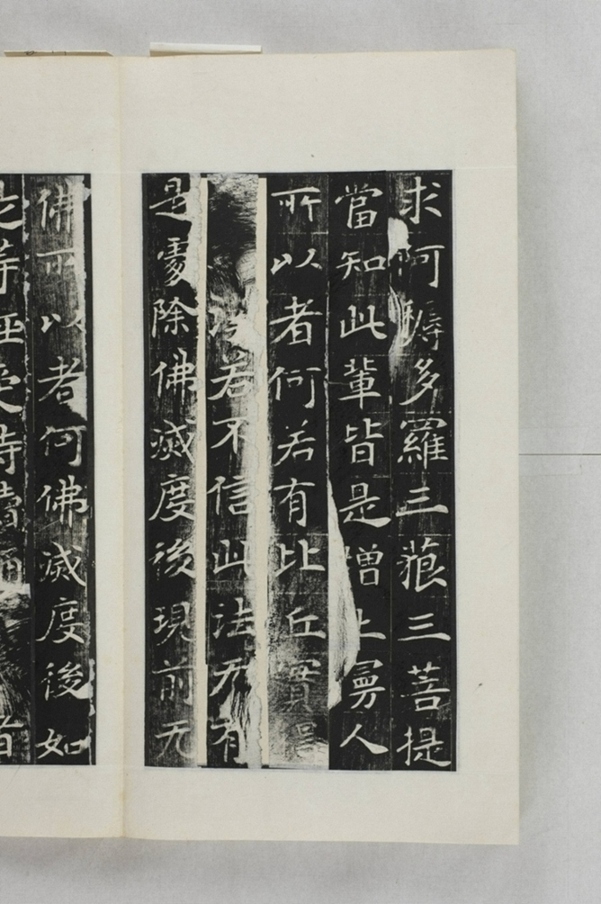 求阿耨多羅三藐三菩提
當知此輩皆是增上慢人
所以者何若有比丘實得
若不信此法无有
是處除佛滅度後現前无
佛所以者何佛滅度後如
等經受持讀誦